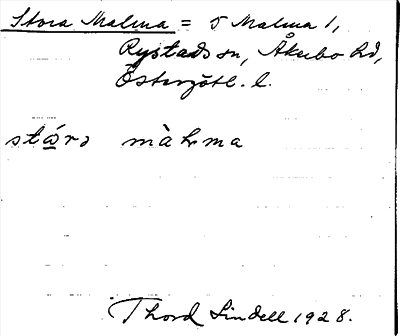 Stora Malma = 5 Malma 1,
Rystads sn, Åkerbo hd,
Östergötl. l.
stárɔ màƚma
Thord Lindell 1928.